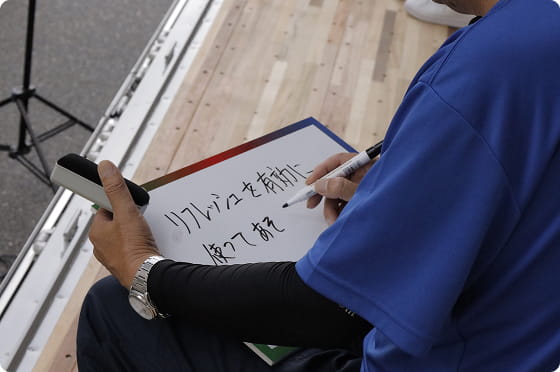 リフレッシュを有効に
使ってあそ